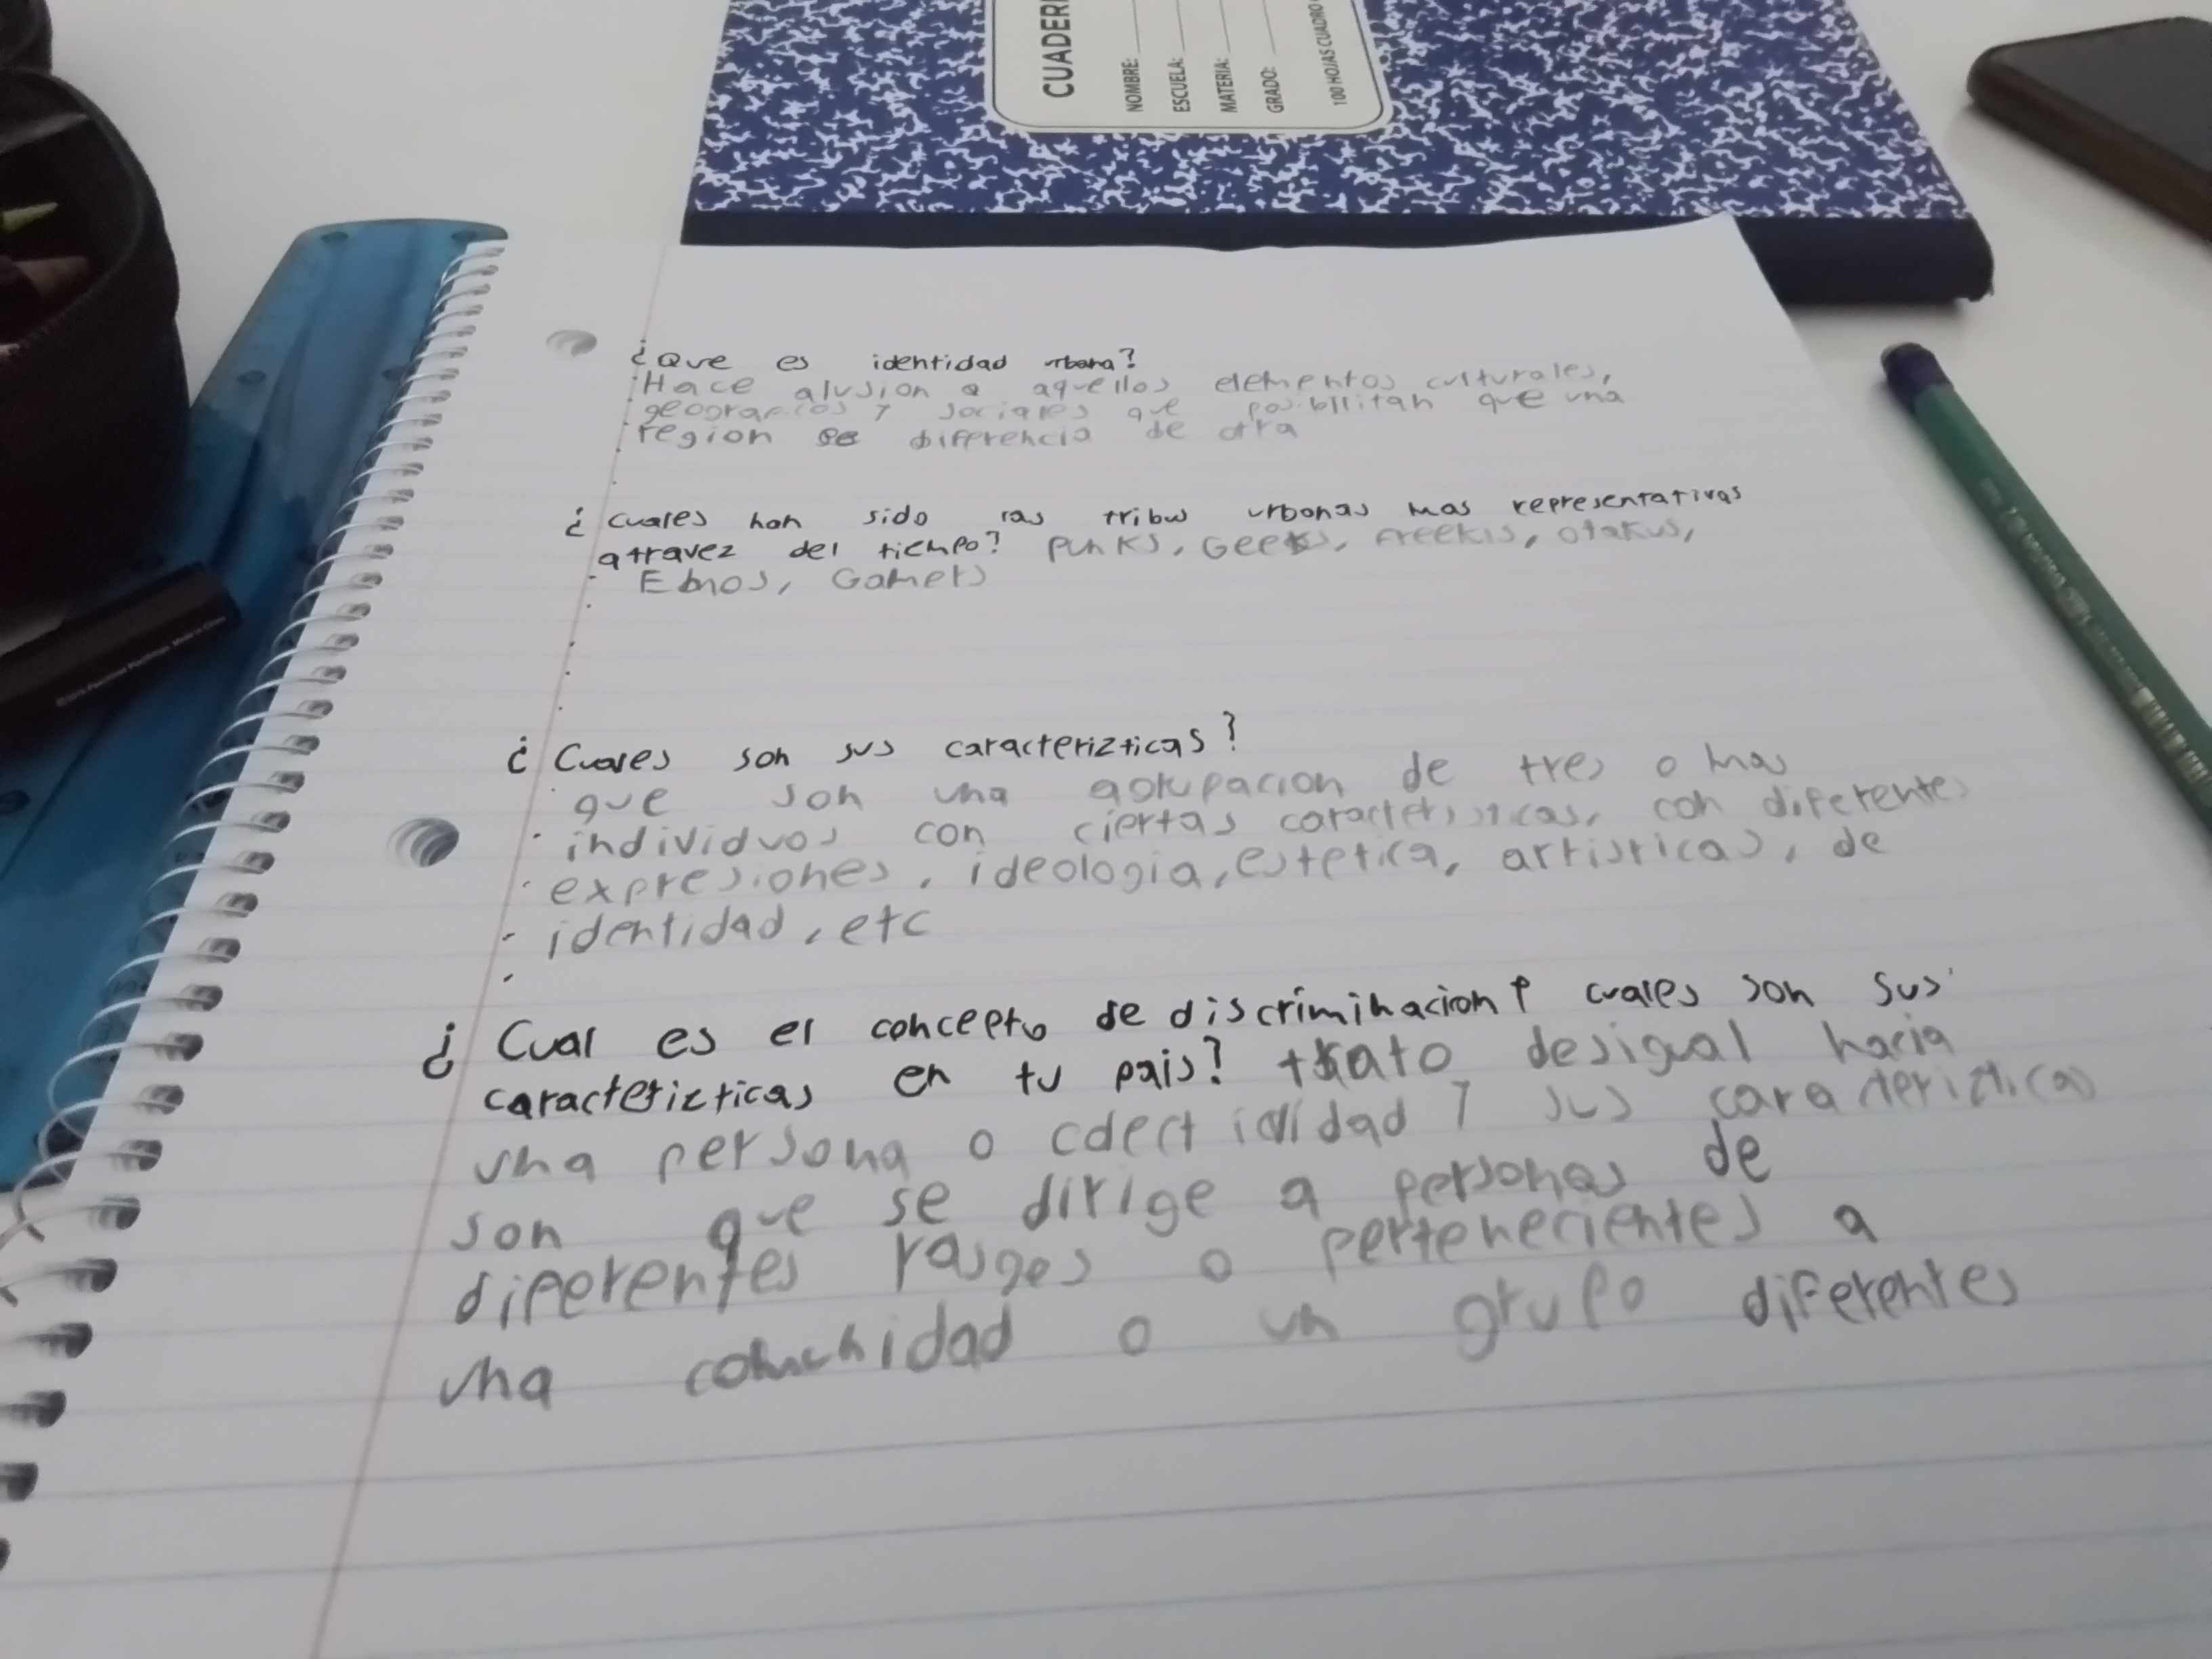 CUADER
NOMBRE:
ESCUELA:
MATERIA:
GRADO:
100 HOJAS CUADRO
¿Que es identidad urbana?
Hace alusion a aquellos elementos culturales,
geograficos y sociales que posibilitan que una
region se diferencia de otra
¿Cuales han sido las tribus urbanas mas representativas
atravez del tiempo? Punks, Geeks, Freekis, Otakus,
Emos, Gamers
¿Cuales son sus caracterizticas?
que son una agrupacion de tres o mas
individuos con ciertas caracteristicas, con diferentes
expresiones, ideologia, estetica, artisticas, de
identidad, etc
¿Cual es el concepto de discriminacion y cuales son sus
caracterizticas en tu pais? trato desigual hacia
una persona o y sus caracterizticas
son que se dirige a personas de
diferentes rasges o pertenecientes a
una comunidad o un grupo diferentes